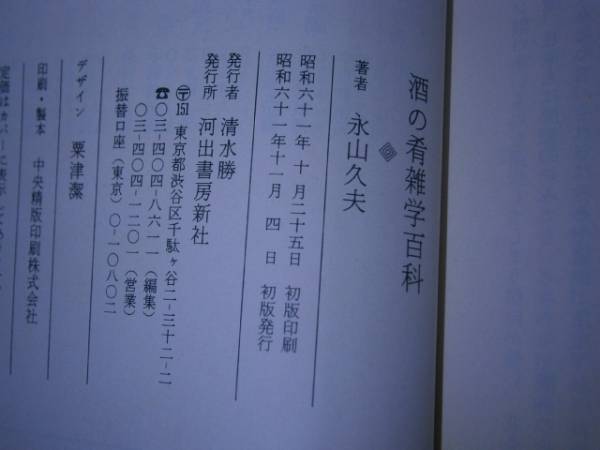 酒の肴雑学百科
著者 永山久夫
昭和六十一年 十 月二十五日 初版印刷
昭和六十一年十一月 四 日 初版発行
発行者 清水勝
発行所 河出書房新社
〒151 東京都渋谷区千駄ヶ谷二-三十二-二
☎〇三-四〇四-八六一一(編集)
〇三-四〇四-一二〇一(営業)
振替口座(東京)〇-一〇八〇二
デザイン 粟津潔
印刷・製本 中央精版印刷株式会社
定価はカバーに表示して